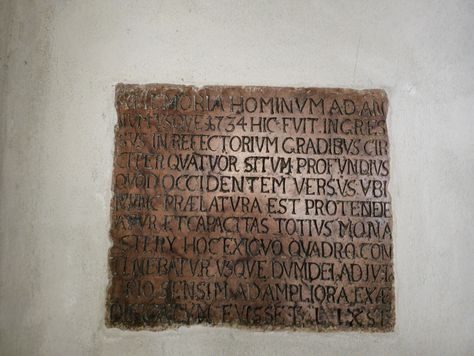 MEMORIA HOMINVM AD AN
NVM VSQVE 1734 HIC FVIT INGRES
SVS IN REFECTORIVM GRADIBVS CIR
CITER QVATVOR SITVM PROFVNDIVS
QVOD OCCIDENTEM VERSVS VBI
NVNC PRÆLATVRA EST PROTENDE
BATVR ET CAPACITAS TOTIVS MONA
STERY HOC EXIGVO QUADRO CON
TINEBATVR VSQVE DVM DEI ADIVT
RIO SENSIM AD AMPLIORA EXÆ
FVISSET